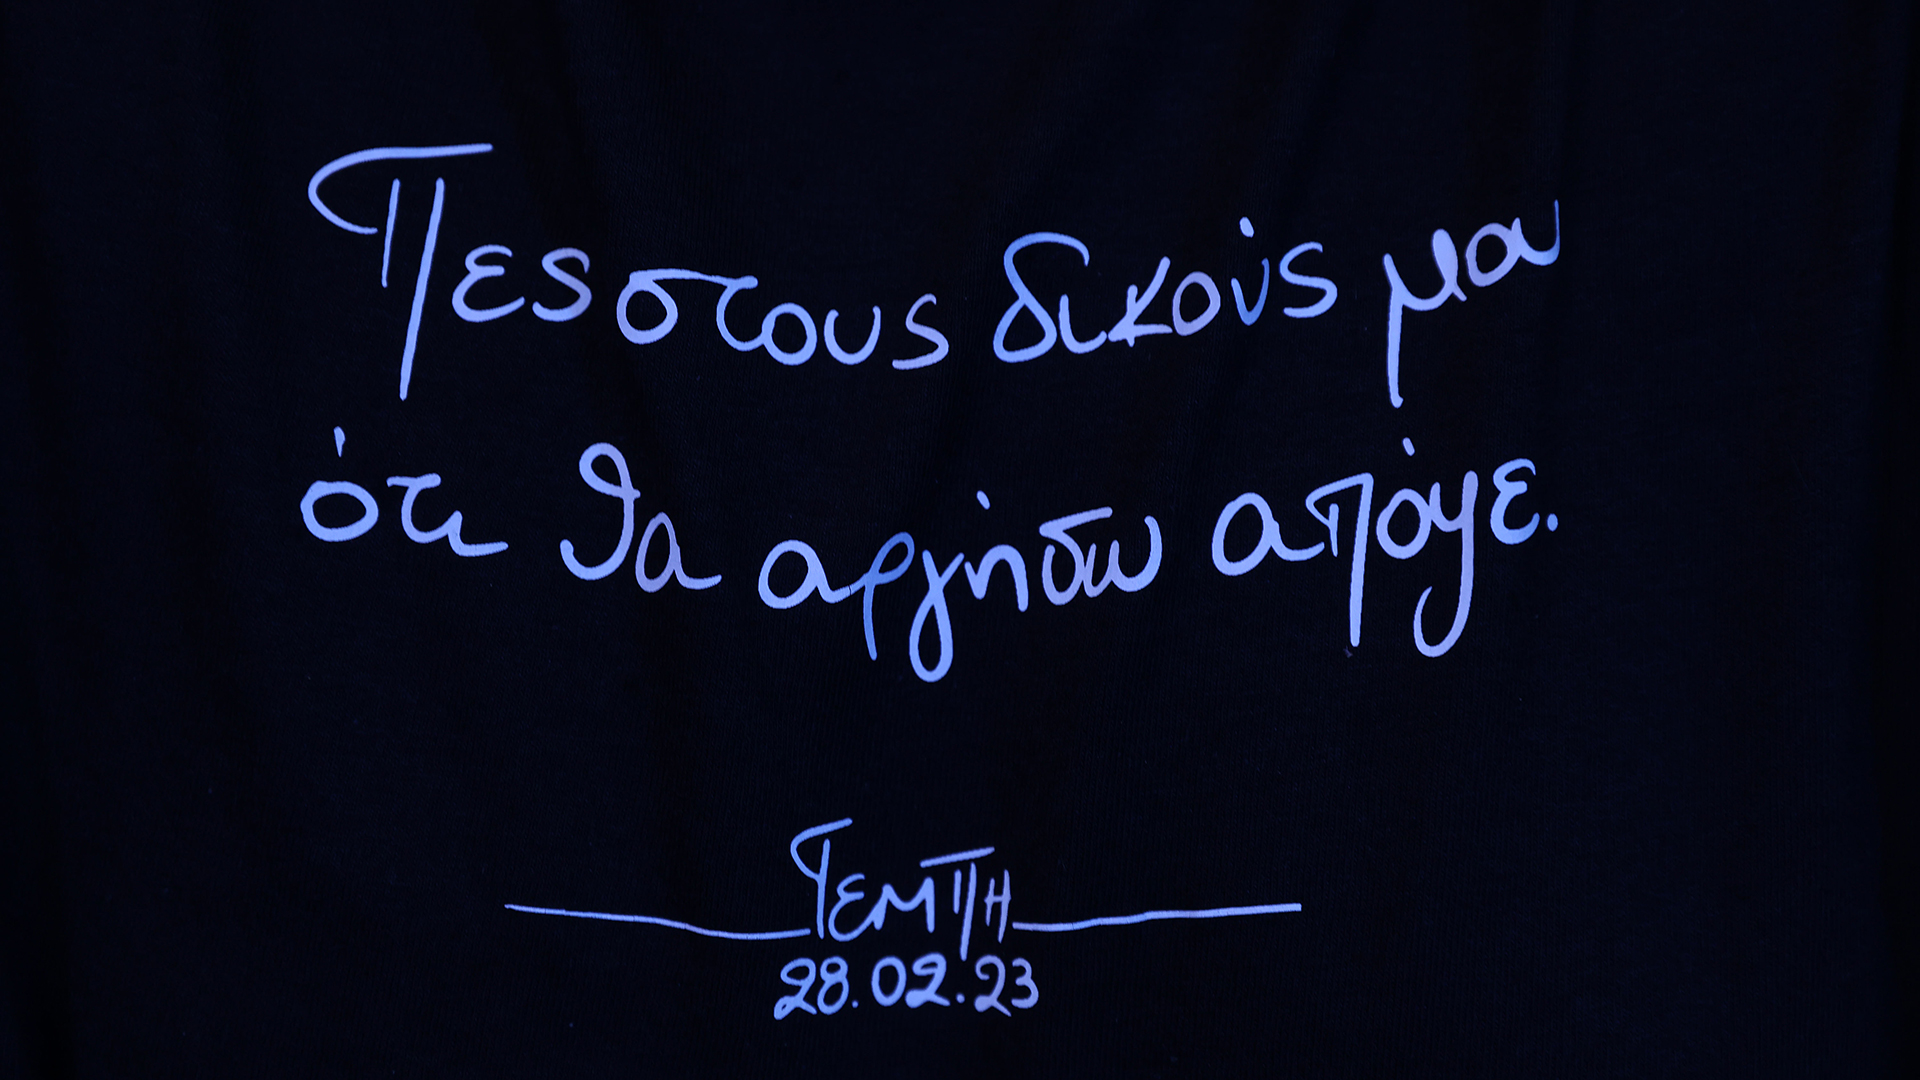 Πες στους δικούς μου
ότι θα αργήσω απόψε.
ΤΕΜΠΗ
28.02.23